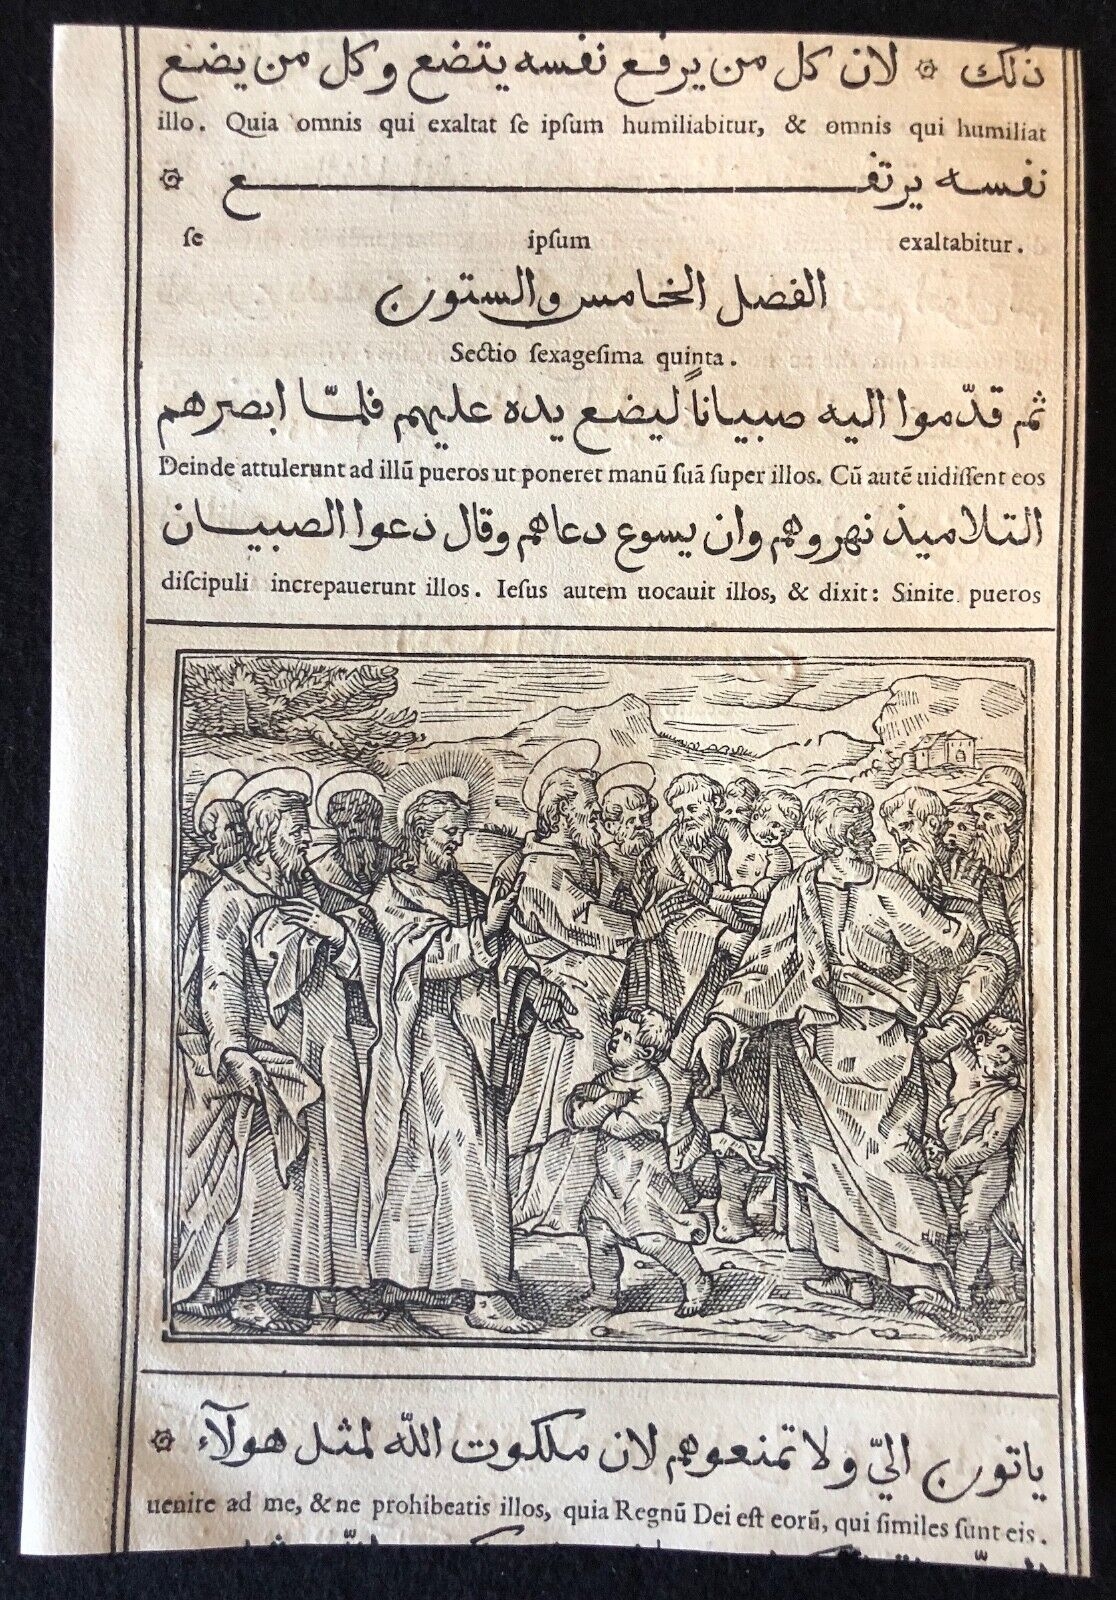 ذلك ۞ لان كل من يرفع نفسه يتضع وكل من يضع
illo. Quia omnis qui exaltat ſe ipſum humiliabitur, & omnis qui humiliat
نفسه يرتفـــــــــــع ۞
ſe ipſum exaltabitur.
الفصل الخامس والستون
Sectio ſexageſima quinta.
ثم قدّموا اليه صبياناً ليضع يده عليهم فلمّا ابصرهم
Deinde attulerunt ad illū pueros ut poneret manū ſuā ſuper illos. Cū autē uidiſſent eos
التلاميذ نهروهم وان يسوع دعاهم وقال دعوا الصبيان
diſcipuli increpauerunt illos. Ieſus autem uocauit illos, & dixit: Sinite pueros
ياتون اليّ ولا تمنعوهم لان ملكوت الله لمثل هولآء ۞
uenire ad me, & ne prohibeatis illos, quia Regnū Dei eſt eorū, qui ſimiles ſunt eis.